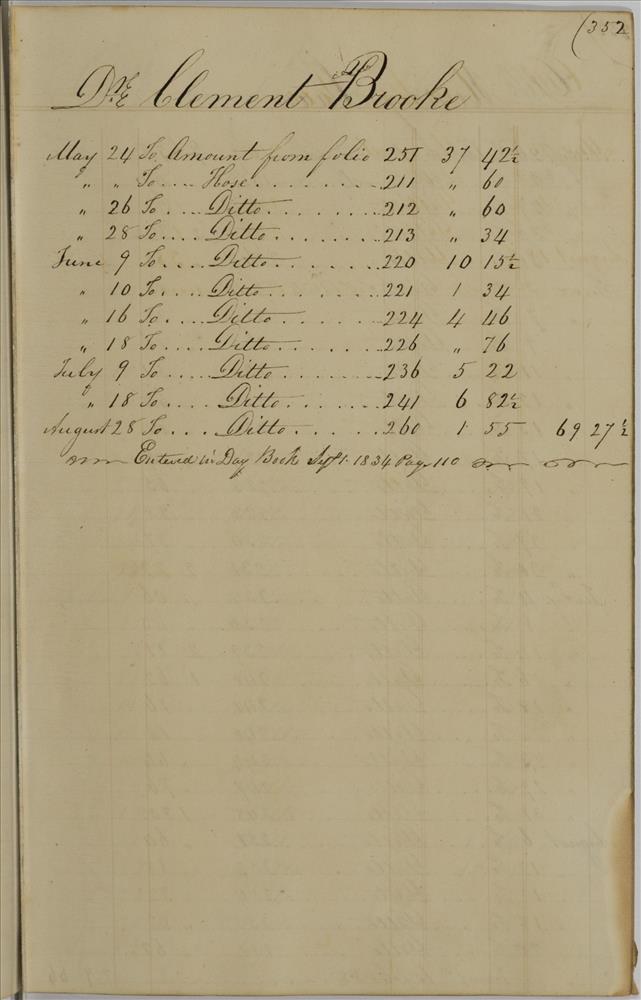 (352
Dr. Clement Brooke
May 24 To Amount from folio 251 37 42½
" " To .... Hose ........ 211 " 60
" 26 To .... Ditto ....... 212 " 60
" 28 To .... Ditto ....... 213 " 34
June 9 To .... Ditto ....... 220 10 15½
" 10 To .... Ditto ....... 221 1 34
" 16 To .... Ditto ....... 224 4 46
" 18 To .... Ditto ....... 226 " 76
July 9 To .... Ditto ....... 236 5 22
" 18 To .... Ditto ....... 241 6 82½
August 28 To .... Ditto ....... 260 1 55 69 27½
Entered in Day Book Sept 1. 1834 Page 110